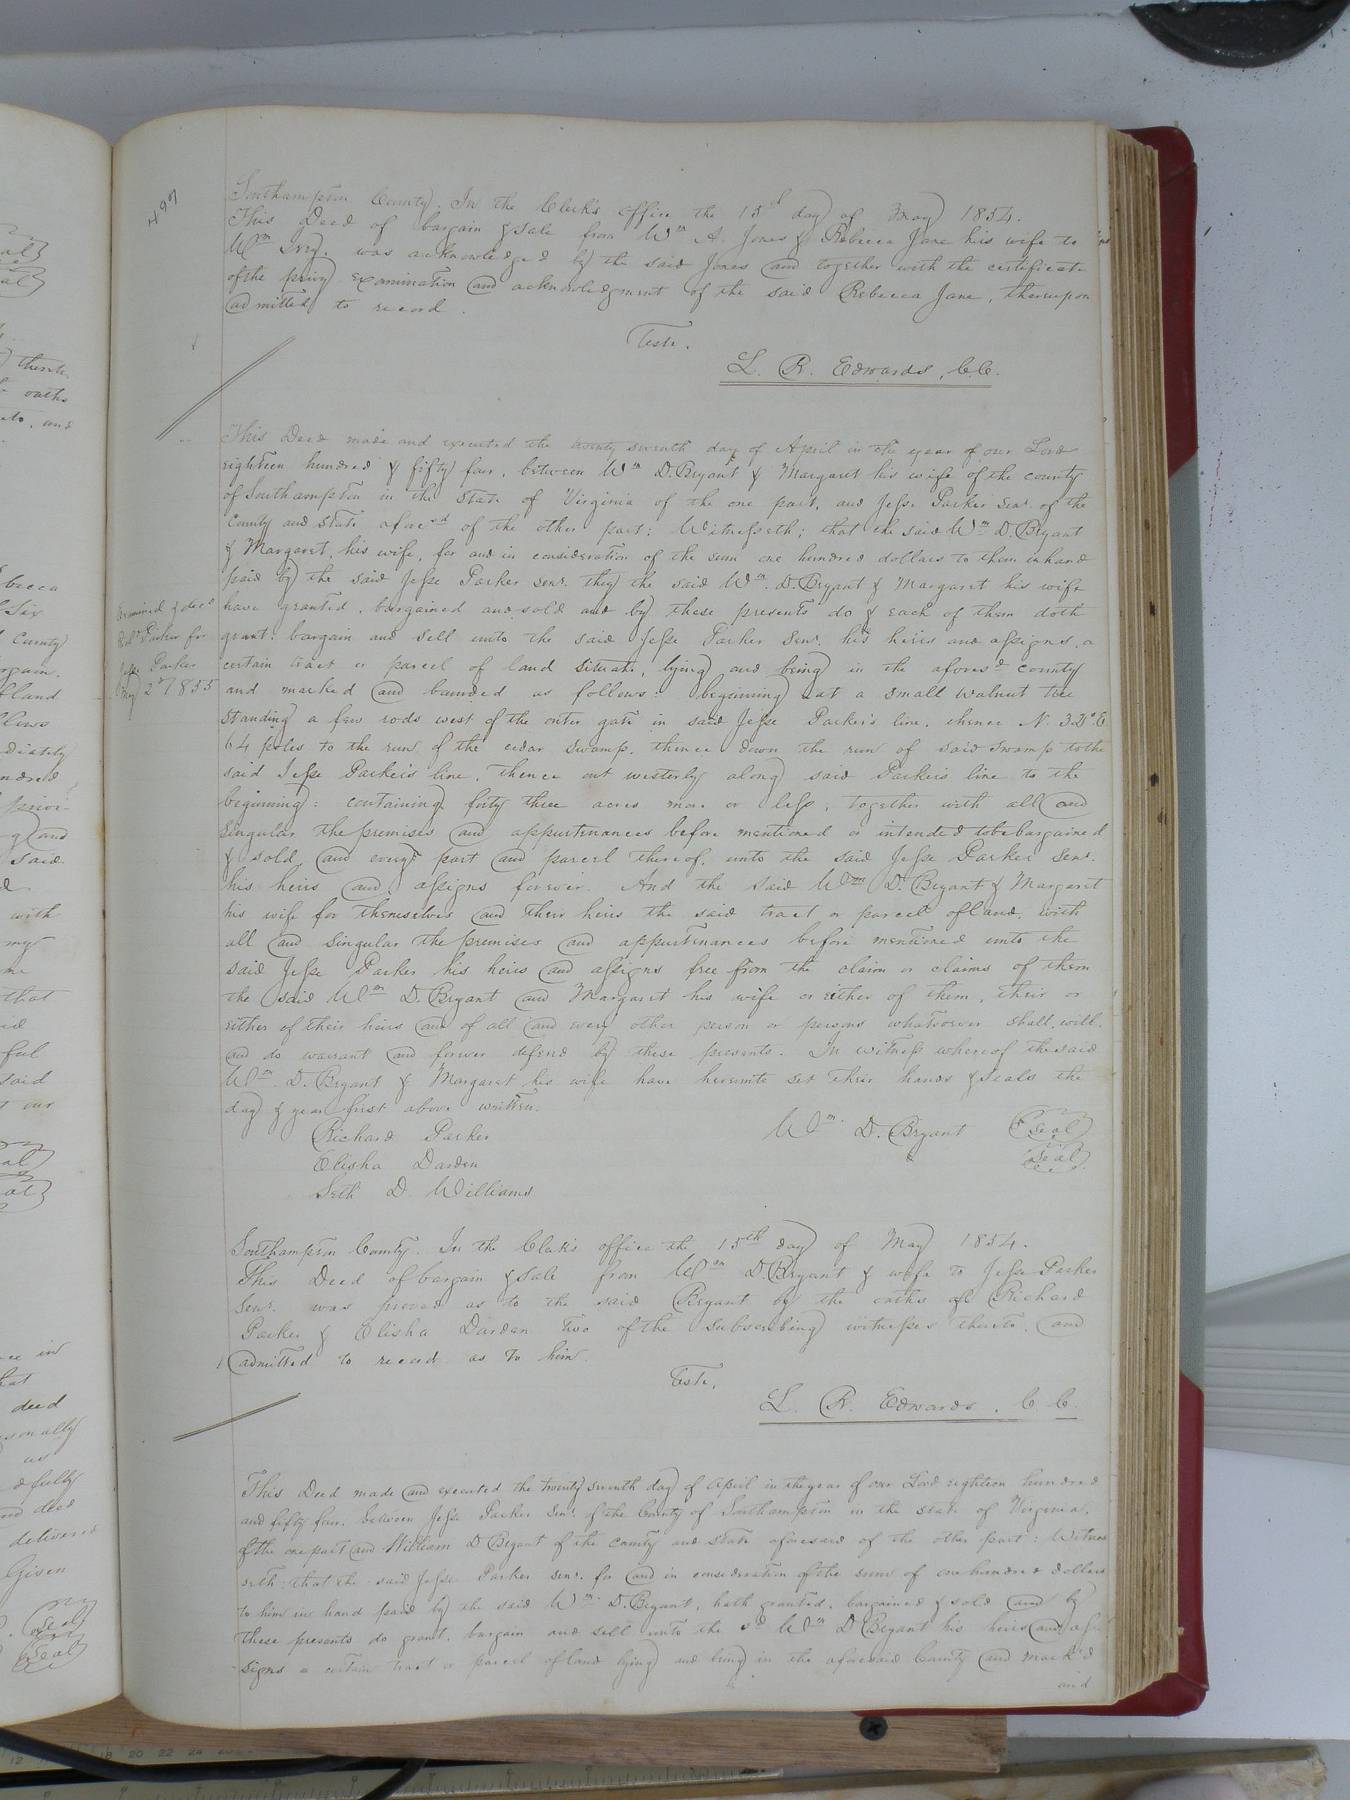 497
Southampton County. In the Clerk's office the 15th day of May 1854.
This Deed of bargain & sale from Wm A. Jones & Rebecca Jane his wife to
Wm Ivy, was acknowledged by the said Jones and together with the certificate
of the privy examination and acknowledgment of the said Rebecca Jane, thereupon
admitted to record.
Teste.
L. R. Edwards, C.C.
This Deed made and executed the twenty seventh day of April in the year of our Lord
eighteen hundred & fifty four, between Wm D. Bryant & Margaret his wife of the county
of Southampton in the State of Virginia of the one part, and Jesse Parker Senr. of the
County and State afores'd of the other part: Witnesseth; that the said Wm D. Bryant
& Margaret, his wife, for and in consideration of the sum one hundred dollars to them in hand
paid by the said Jesse Parker senr. they the said Wm. D. Bryant & Margaret his wife
have granted, bargained and sold and by these presents do & each of them doth
grant, bargain and sell unto the said Jesse Parker Senr. his heirs and assigns, a
certain tract or parcel of land situate, lying and being in the afores'd county
and marked and bounded as follows: beginning at a small walnut tree
standing a few rods west of the outer gate in said Jesse Parker's line, thence N.
64 poles to the run of the cedar swamp, thence down the run of said swamp to the
said Jesse Parker's line, thence out westerly along said Parker's line to the
beginning: containing forty three acres more or less, together with all and
singular the premises and appurtenances before mentioned or intended to be bargained
& sold, and every part and parcel thereof, unto the said Jesse Parker Senr.
his heirs and assigns forever. And the said Wm D. Bryant & Margaret
his wife for themselves and their heirs the said tract or parcel of land, with
all and singular the premises and appurtenances before mentioned unto the
said Jesse Parker his heirs and assigns free from the claim or claims of them
the said Wm D. Bryant and Margaret his wife or either of them, their or
either of their heirs and of all and every other person or persons whatsoever shall, will,
and do warrant and forever defend by these presents. In witness whereof the said
Wm. D. Bryant & Margaret his wife have hereunto set their hands & seals the
day & year first above written.
Richard Parker
Wm. D. Bryant Seal
Elisha Darden
Seal
Seth D. Williams
Examined & deld
Richd Parker for
Jesse Parker
May 2d 1855
Southampton County. In the Clerk's office the 15th day of May 1854.
This Deed of bargain & sale from Wm D. Bryant & wife to Jesse Parker
Senr. was proved as to the said Bryant by the oaths of Richard
Parker & Elisha Darden two of the subscribing witnesses thereto, and
admitted to record as to him.
Teste,
L. R. Edwards, C C.
This Deed made and executed the twenty seventh day of April in the year of our Lord eighteen hundred
and fifty four, between Jesse Parker Senr. of the County of Southampton in the state of Virginia,
of the one part and William D Bryant of the county and state aforesaid of the other part: Witnes
seth: that the said Jesse Parker senr. for and in consideration of the sum of one hundred dollars
to him in hand paid by the said Wm. D. Bryant, hath granted, bargained & sold and by
these presents do grant, bargain and sell unto the sd Wm D Bryant his heirs and as
signs a certain tract or parcel of land lying and being in the aforesaid County and mark'd
and